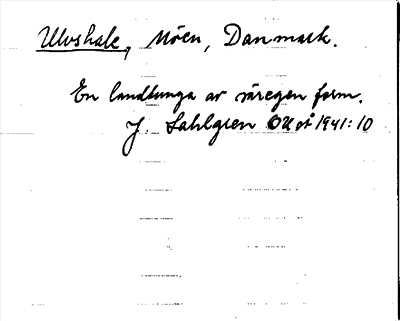 Ulvshale, Möen, Danmark.
En landtunga av säregen form.
J. Sahlgren OUÅ 1941:10